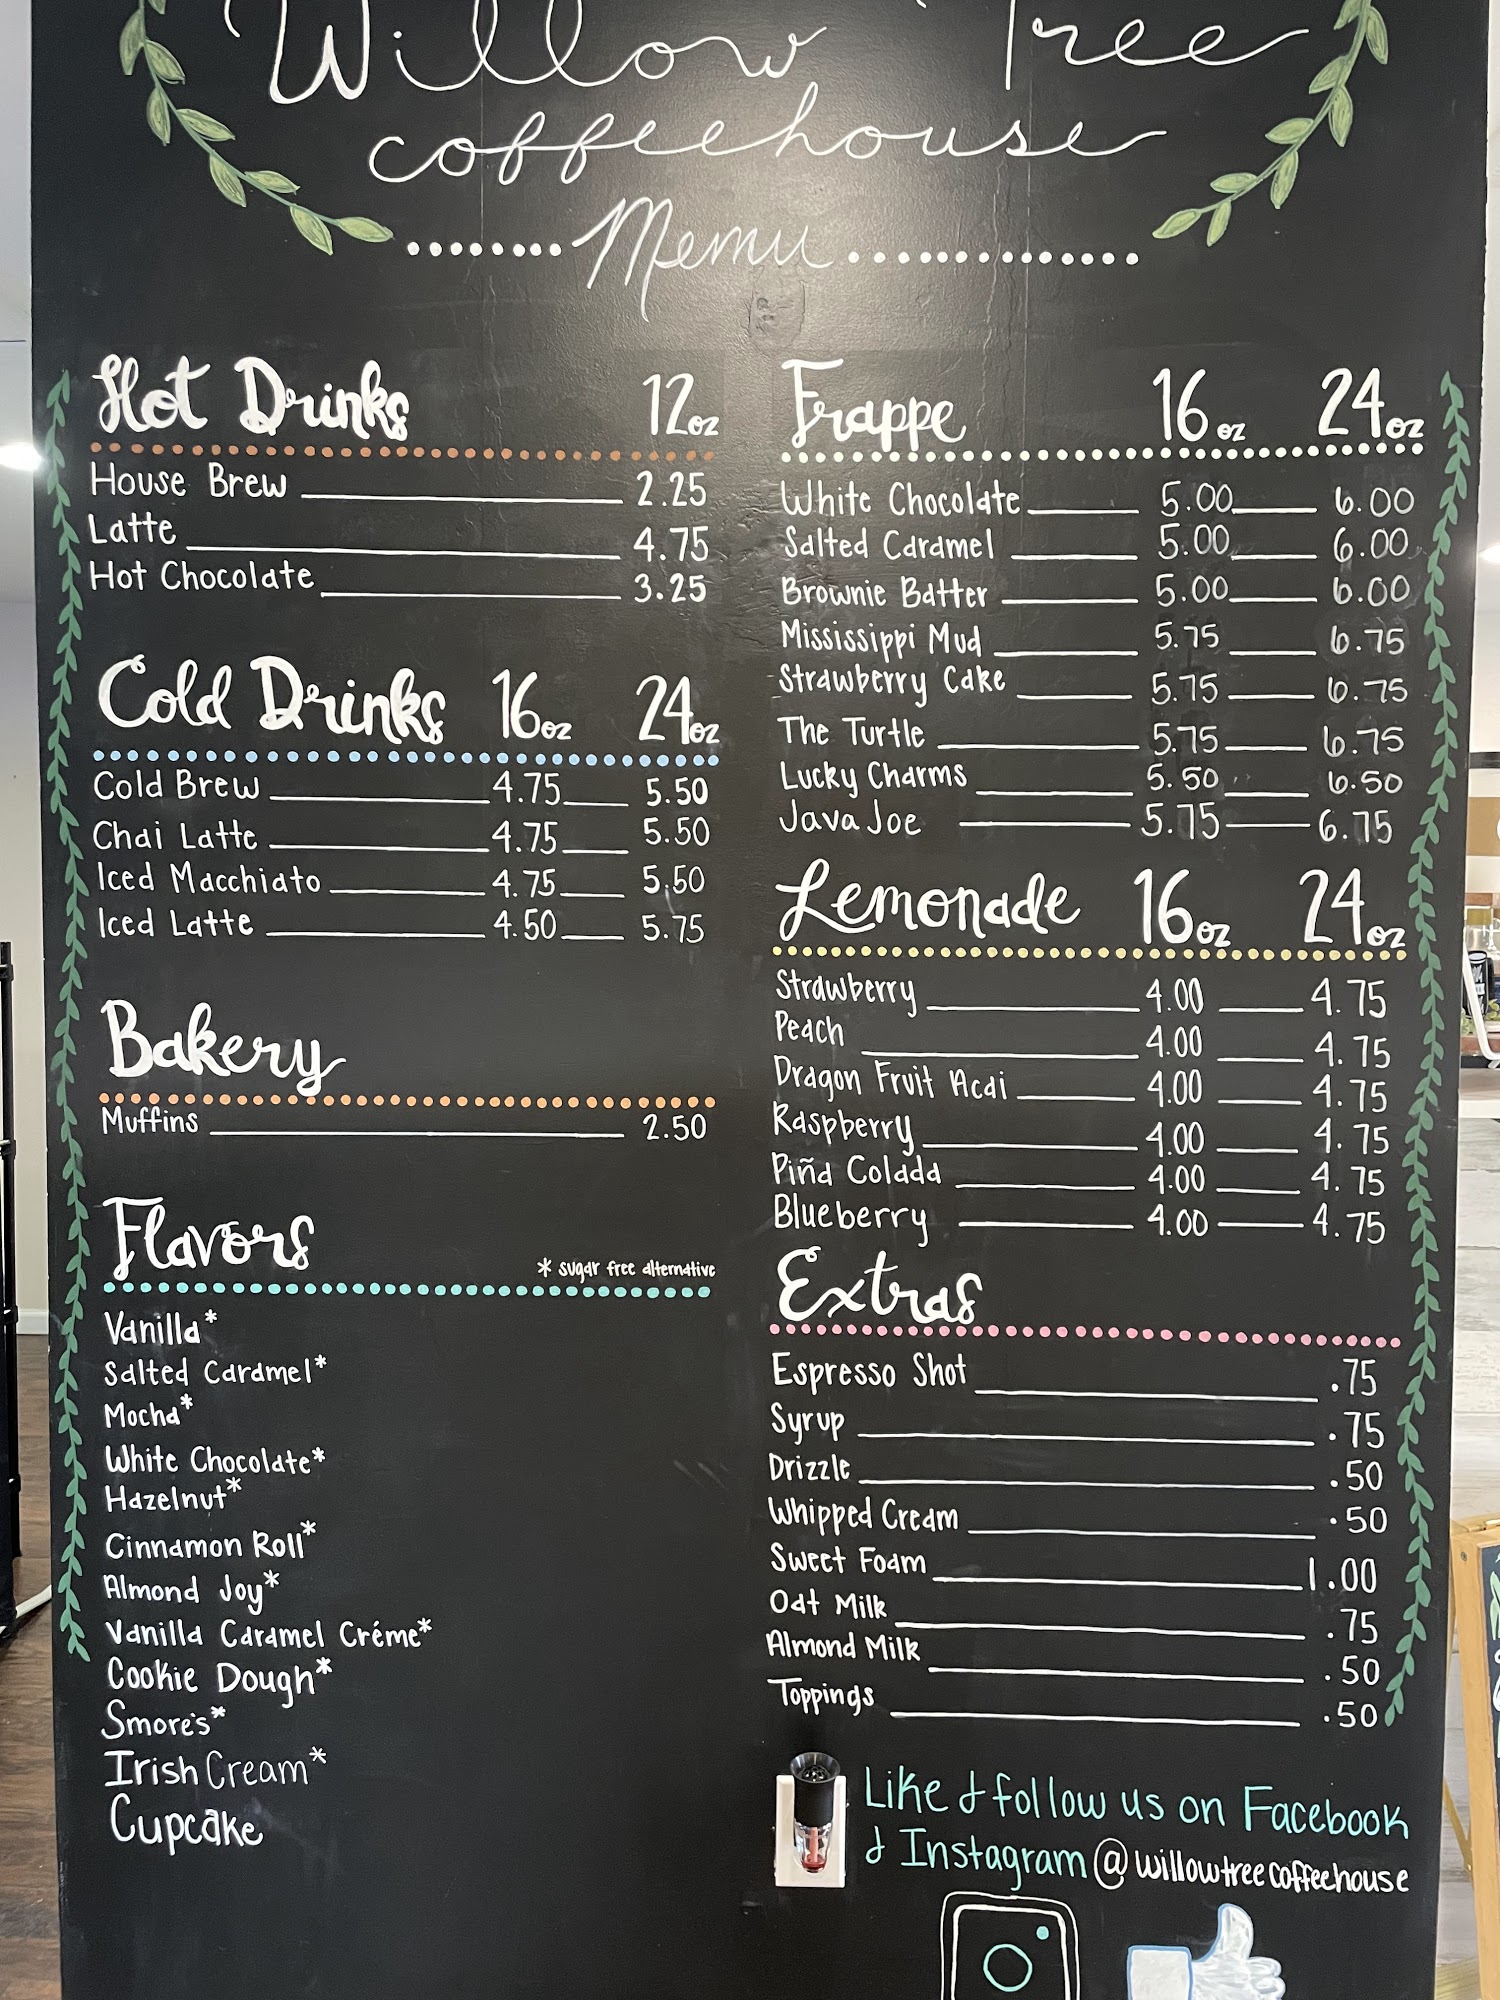 Willow Tree
coffeehouse
Menu
Hot Drinks 12oz
House Brew 2.25
Latte 4.75
Hot Chocolate 3.25
Cold Drinks 16oz 24oz
Cold Brew 4.75 5.50
Chai Latte 4.75 5.50
Iced Macchiato 4.75 5.50
Iced Latte 4.50 5.75
Bakery
Muffins 2.50
Flavors * sugar free alternative
Vanilla*
Salted Caramel*
Mocha*
White Chocolate*
Hazelnut*
Cinnamon Roll*
Almond Joy*
Vanilla Caramel Créme*
Cookie Dough*
Smore's*
Irish Cream*
Cupcake
Frappe 16oz 24oz
White Chocolate 5.00 6.00
Salted Caramel 5.00 6.00
Brownie Batter 5.00 6.00
Mississippi Mud 5.75 6.75
Strawberry Cake 5.75 6.75
The Turtle 5.75 6.75
Lucky Charms 5.50 6.50
Java Joe 5.75 6.75
Lemonade 16oz 24oz
Strawberry 4.00 4.75
Peach 4.00 4.75
Dragon Fruit Acai 4.00 4.75
Raspberry 4.00 4.75
Piña Colada 4.00 4.75
Blueberry 4.00 4.75
Extras
Espresso Shot .75
Syrup .75
Drizzle .50
Whipped Cream .50
Sweet Foam 1.00
Oat Milk .75
Almond Milk .50
Toppings .50
Like & follow us on Facebook
& Instagram @willowtreecoffeehouse